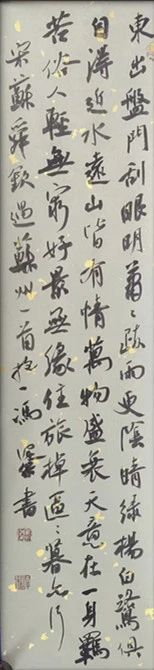 東出盤門刮眼明蕭々疎雨更陰晴綠楊白鷺俱
自得近水遠山皆有情萬物盛衰天意在一身羈
苦俗人輕無窮好景無緣住旅棹區々暮亦行
宋蘇舜欽過蘇州一首 馮 書